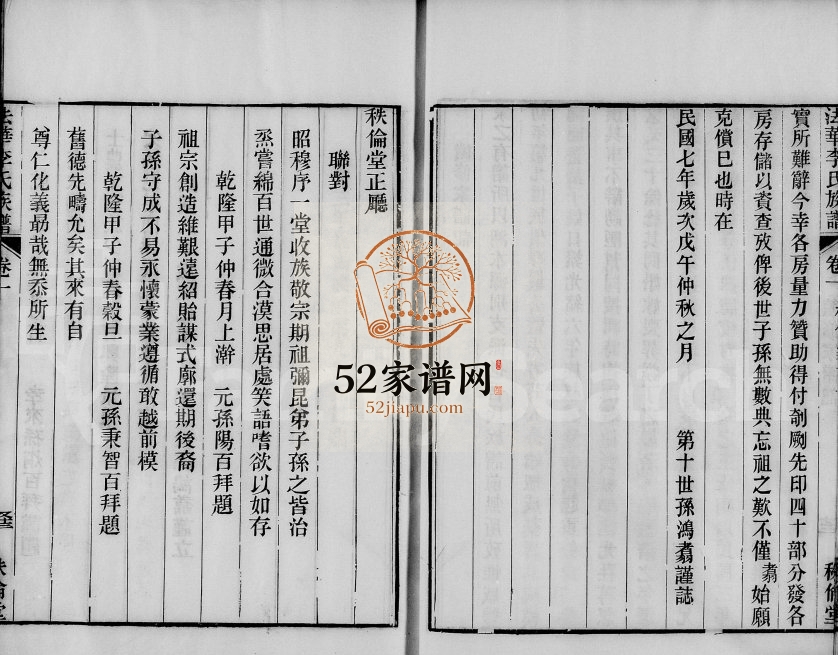 法華李氏族譜
卷一
實所難辭今幸各房量力贊助得付剞劂先印四十部分發各
房存儲以資查攷俾後世子孫無數典忘祖之歎不僅翥始願
克償已也時在
民國七年歲次戊午仲秋之月　第十世孫鴻翥謹誌
秩倫堂
秩倫堂正廳
聯對
昭穆序一堂收族敬宗期祖彌昆弟子孫之皆治
烝嘗綿百世通微合漠思居處笑語嗜欲以如存
乾隆甲子仲春月上澣　元孫陽百拜題
祖宗創造維艱遠紹貽謀式廓還期後裔
子孫守成不易永懷蒙業遵循敢越前模
乾隆甲子仲春穀旦　元孫秉智百拜題
舊德先疇允矣其來有自
尊仁化義勗哉無忝所生
法華李氏族譜
卷一
秩倫堂
52家谱网
52jiapu.com